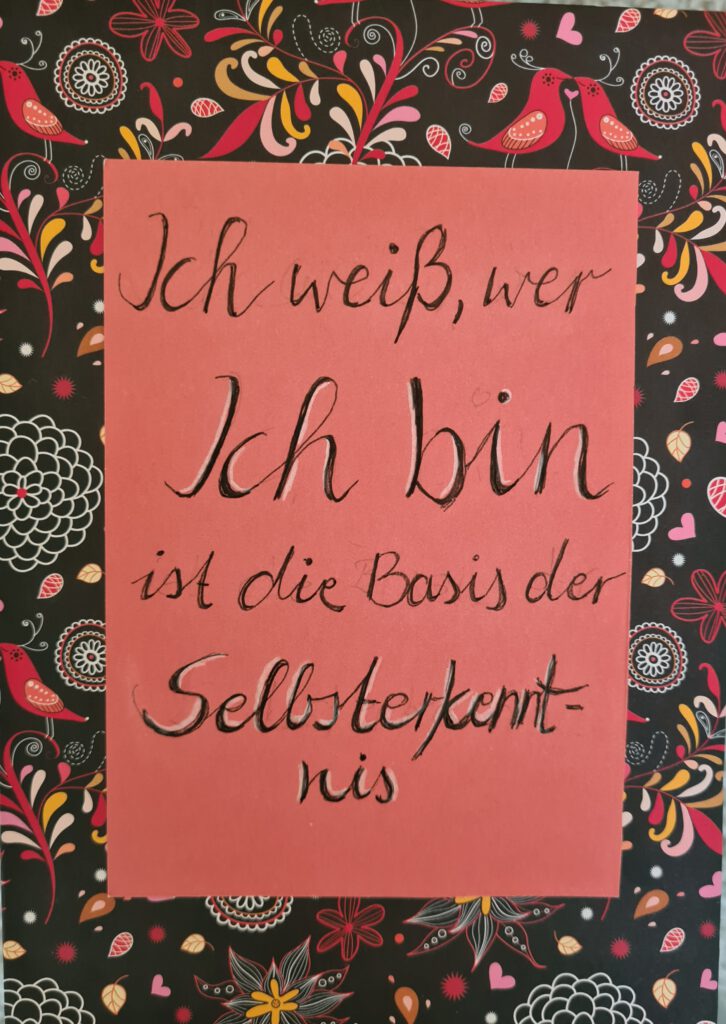 Ich weiß, wer
Ich bin
ist die Basis der
Selbsterkennt-
nis